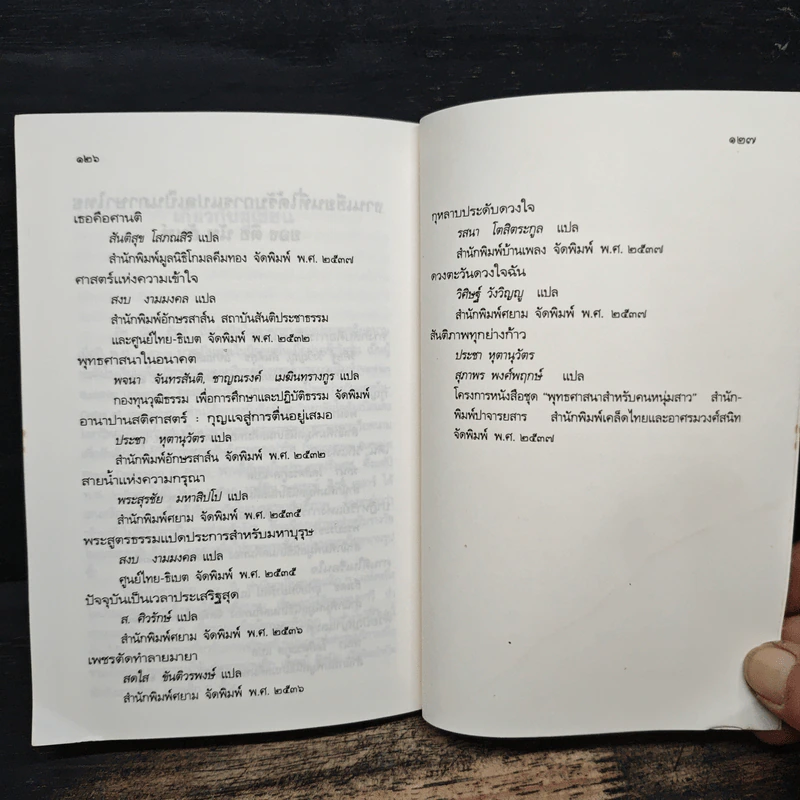 ๑๒๖
เธอคือศานติ
สันติสุข โสภณสิริ แปล
สำนักพิมพ์มูลนิธิโกมลคีมทอง จัดพิมพ์ พ.ศ. ๒๕๓๗
ศาสตร์แห่งความเข้าใจ
สงบ งามมงคล แปล
สำนักพิมพ์อักษรสาส์น สถาบันสันติประชาธรรม
และศูนย์ไทย-ธิเบต จัดพิมพ์ พ.ศ. ๒๕๓๒
พุทธศาสนาในอนาคต
พจนา จันทรสันติ, ชาญณรงค์ เมฆินทรางกูร แปล
กองทุนวุฒิธรรม เพื่อการศึกษาและปฏิบัติธรรม จัดพิมพ์
อานาปานสติศาสตร์ : กุญแจสู่การตื่นอยู่เสมอ
ประชา หุตานุวัตร แปล
สำนักพิมพ์อักษรสาส์น จัดพิมพ์ พ.ศ. ๒๕๓๒
สายน้ำแห่งความกรุณา
พระสุรชัย มหาสิปโป แปล
สำนักพิมพ์ศยาม จัดพิมพ์ พ.ศ. ๒๕๓๕
พระสูตรธรรมแปดประการสำหรับมหาบุรุษ
สงบ งามมงคล แปล
ศูนย์ไทย-ธิเบต จัดพิมพ์ พ.ศ. ๒๕๓๕
ปัจจุบันเป็นเวลาประเสริฐสุด
ส. ศิวรักษ์ แปล
สำนักพิมพ์ศยาม จัดพิมพ์ พ.ศ. ๒๕๓๖
เพชรตัดทำลายมายา
สดใส ขันติวรพงษ์ แปล
สำนักพิมพ์ศยาม จัดพิมพ์ พ.ศ. ๒๕๓๖
๑๒๗
กุหลาบประดับดวงใจ
รสนา โตสิตระกูล แปล
สำนักพิมพ์บ้านเพลง จัดพิมพ์ พ.ศ. ๒๕๓๗
ดวงตะวันดวงใจฉัน
วิศิษฐ์ วังวิญญู แปล
สำนักพิมพ์ศยาม จัดพิมพ์ พ.ศ. ๒๕๓๗
สันติภาพทุกย่างก้าว
ประชา หุตานุวัตร
สุภาพร พงศ์พฤกษ์ แปล
โครงการหนังสือชุด "พุทธศาสนาสำหรับคนหนุ่มสาว" สำนัก-
พิมพ์ปาจารยสาร สำนักพิมพ์เคล็ดไทยและอาศรมวงศ์สนิท
จัดพิมพ์ พ.ศ. ๒๕๓๗